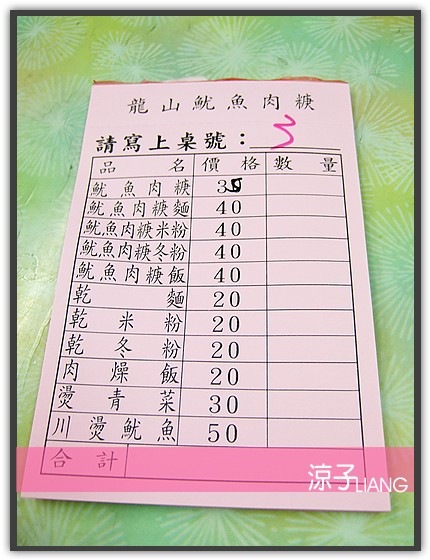 龍山魷魚肉糖
請寫上桌號：3
品名 價格 數量
魷魚肉糖 35
魷魚肉糖麵 40
魷魚肉糖米粉 40
魷魚肉糖冬粉 40
魷魚肉糖飯 40
乾麵 20
乾米粉 20
乾冬粉 20
肉燥飯 20
燙青菜 30
川燙魷魚 50
合計
涼子LIANG